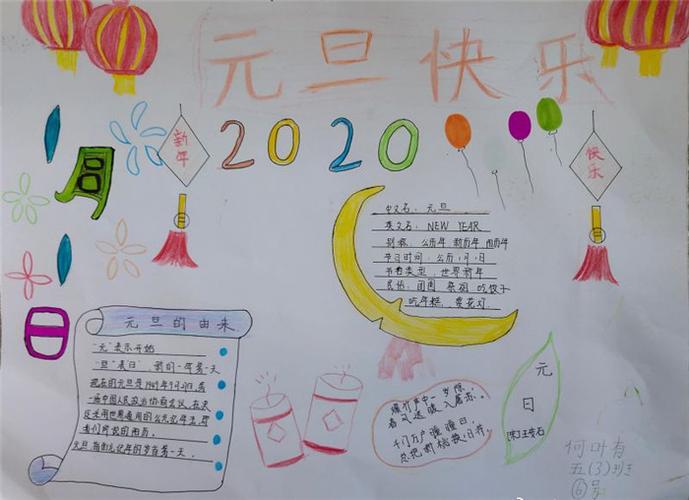 元旦快乐
1月1日
新年
2020
快乐
中文名：元旦
英文名：NEW YEAR
别称：公历年 新历年 阳历年
节日时间：公历1月1日
节日类型：世界新年
民俗：团圆 祭祖 吃饺子
吃年糕，赏花灯
元旦的由来
"元"表示开始
"旦"表"日"，新的一年第一天
现在的元旦是1949年9月27日，第
一届中国人民政治协商会议，在决
反采用世界通用的公元纪年法，即
我们所说的阳历。
元旦，指公元纪年的岁首第一天。
爆竹声中一岁除，
春风送暖入屠苏。
千门万户曈曈日，
总把新桃换旧符。
元
日
[宋]王安石
何叶有
五(3)班
⑥号